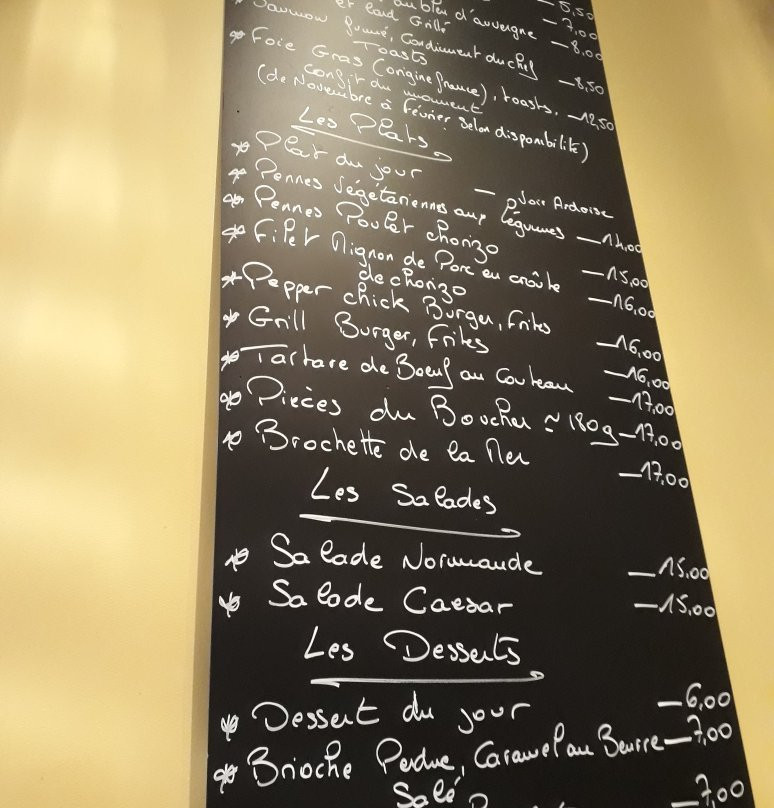 5,50
au bleu d'auvergne – 7,00
et Lard Grillé
* Saumon fumé, Condiment du chef – 8,00
Toasts
* Foie Gras (origine france), toasts, – 8,50
Confit du moment – 12,50
(de Novembre à Février selon disponibilité)
Les Plats
* Plat du jour – voir Ardoise
* Pennes Végétariennes aux légumes – 14,00
* Pennes Poulet chorizo – 15,00
* Filet Mignon de Porc en croûte – 16,00
de chorizo
* Pepper chick Burger, Frites – 16,00
* Grill Burger, Frites – 16,00
* Tartare de Boeuf au Couteau – 17,00
* Pièces du Boucher ≃ 180g – 17,00
* Brochette de la Mer – 17,00
Les Salades
* Salade Normande – 15,00
* Salade Caesar – 15,00
Les Desserts
* Dessert du jour – 6,00
* Brioche Perdue, Caramel au Beurre – 7,00
Salé
7,00